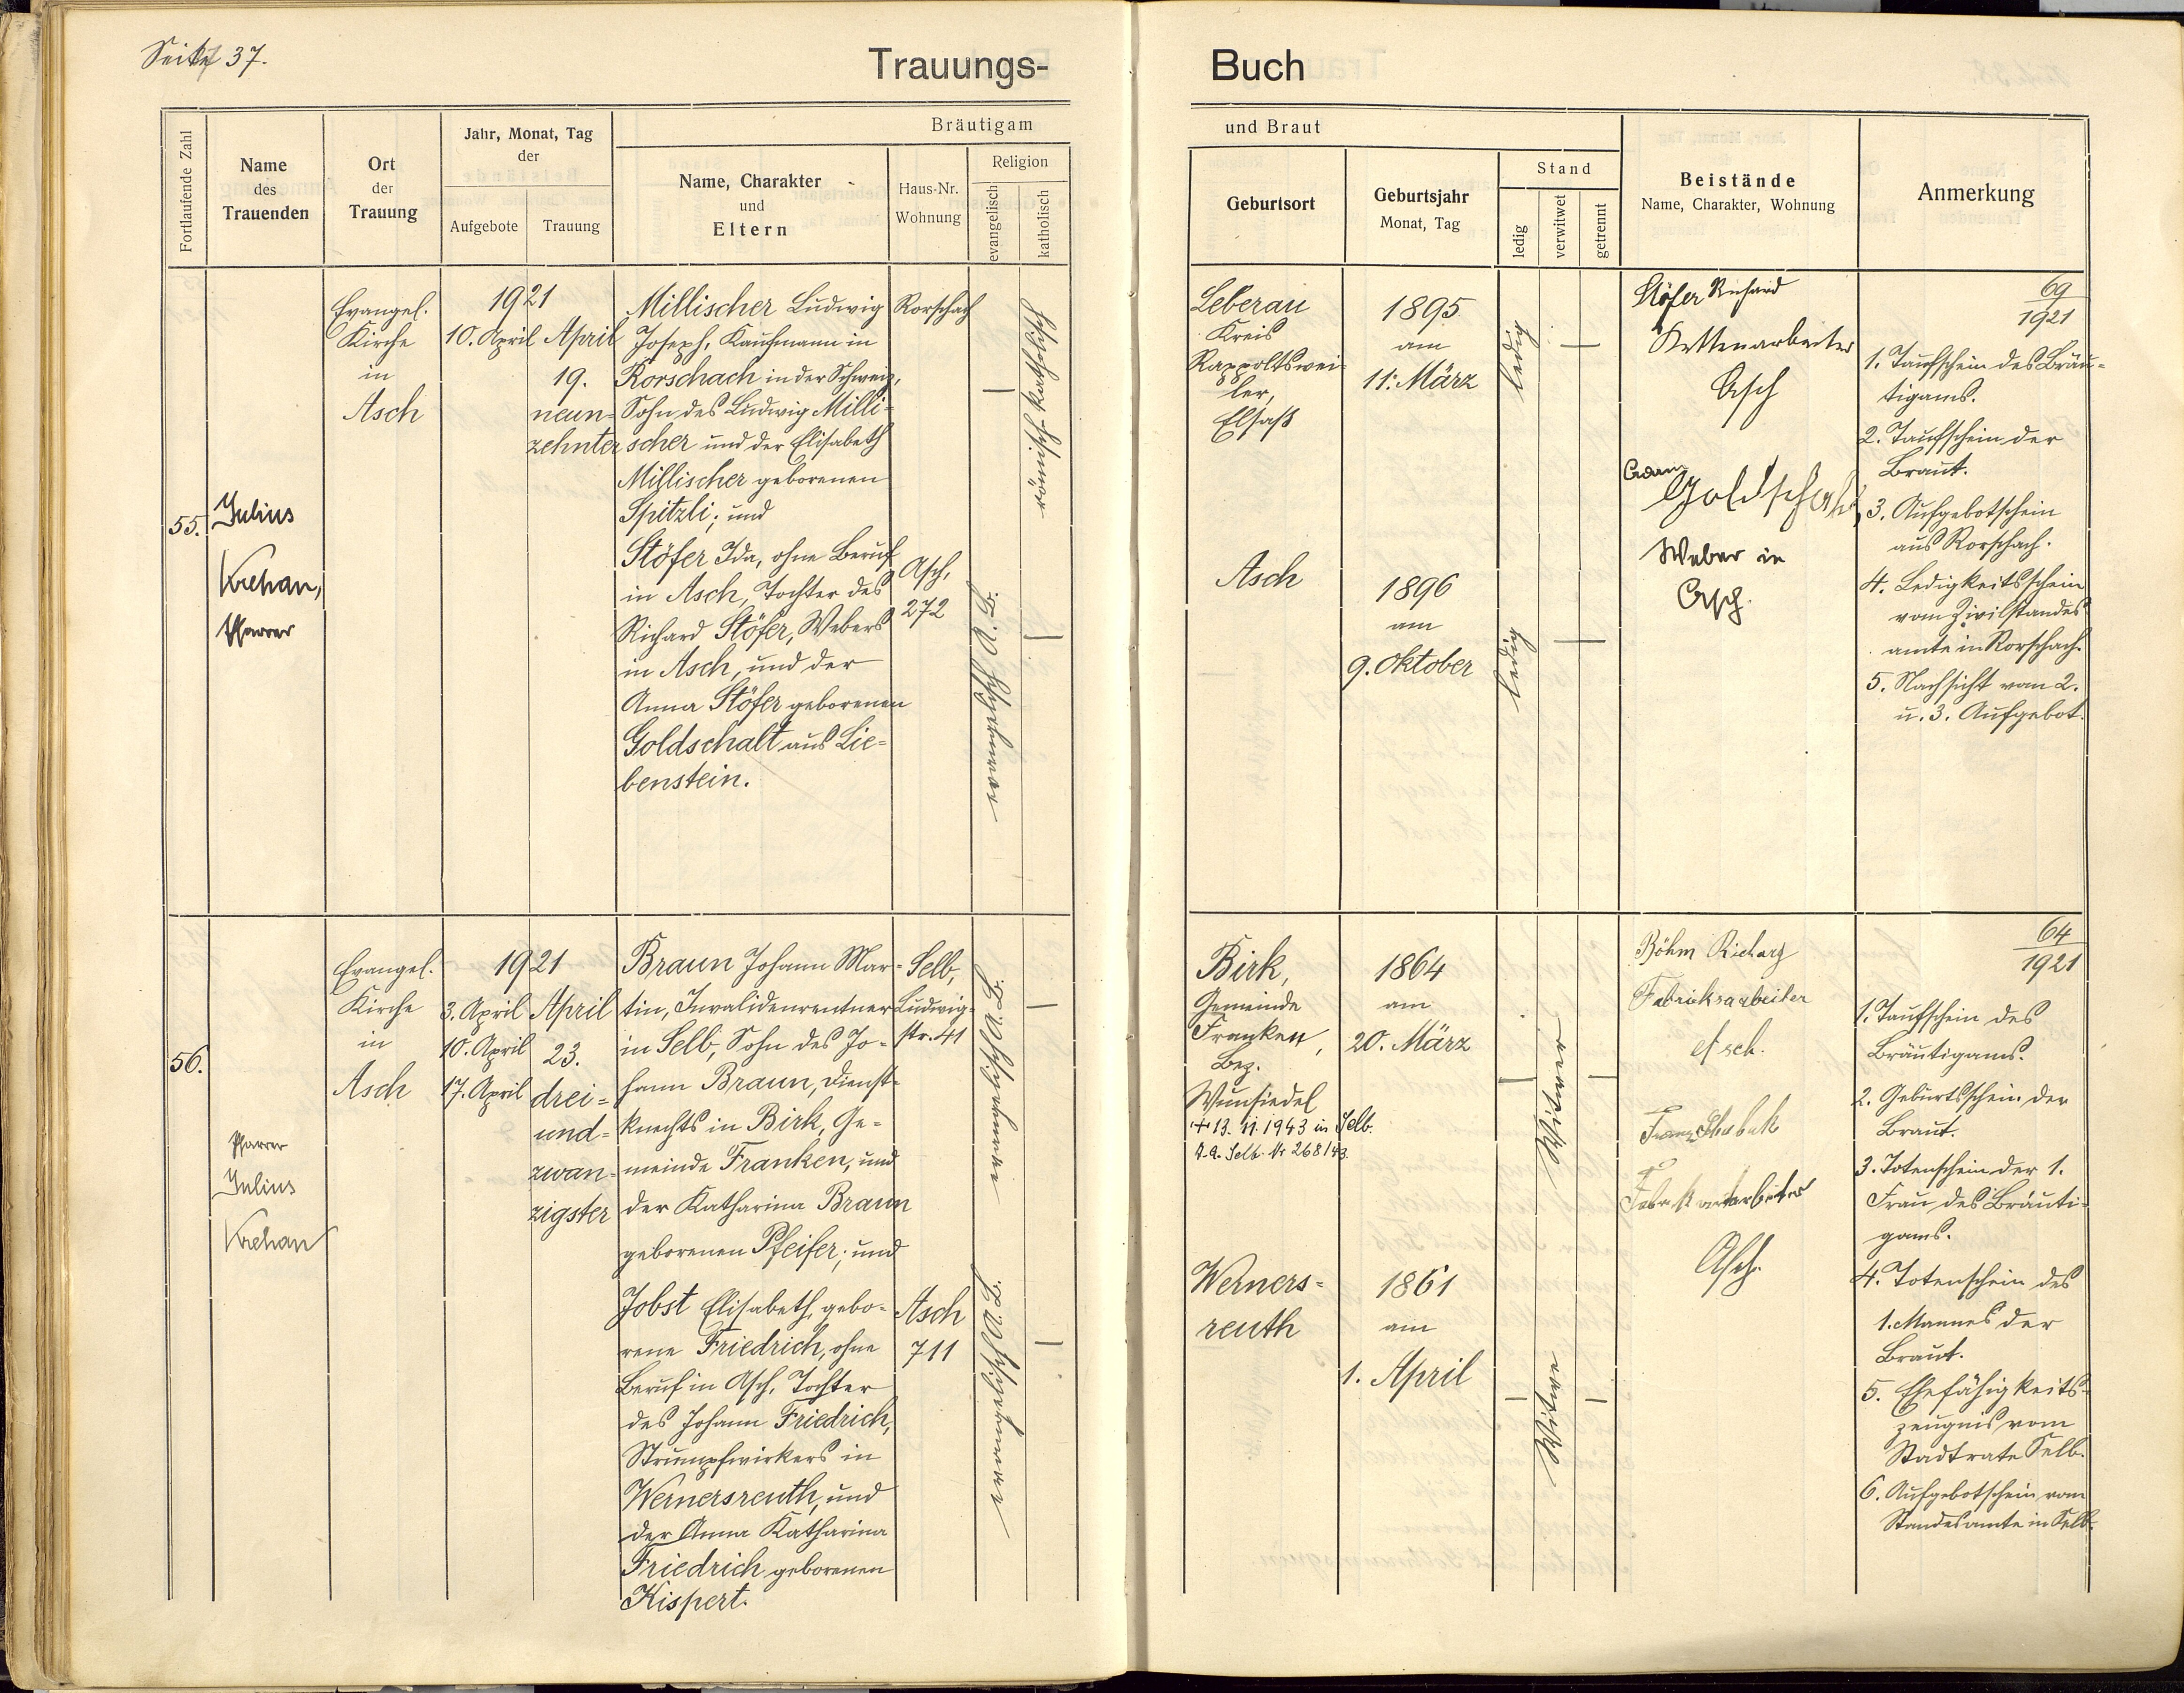 Seite 37.
Trauungs-
Buch
Fortlaufende Zahl
Name
des
Trauenden
Ort
der
Trauung
Jahr, Monat, Tag
der
Aufgebote
Trauung
Bräutigam
Name, Charakter
und
Eltern
Haus-Nr.
Wohnung
Religion
evangelisch
katholisch
und Braut
Geburtsort
Geburtsjahr
Monat, Tag
Stand
ledig
verwitwet
getrennt
Beistände
Name, Charakter, Wohnung
Anmerkung
55.
Julius
Krehan,
Pfarrer
Evangel.
Kirche
in
Asch
1921
10. April
April
19.
neun=
zehnter
Millischer Ludwig
Joseph, Kaufmann in
Rorschach in der Schweiz,
Sohn des Ludwig Milli=
scher und der Elisabeth
Millischer geborenen
Spitzli; und
Stöfer Ida, ohne Beruf
in Asch, Tochter des
Richard Stöfer, Webers
in Asch, und der
Anna Stöfer geborenen
Goldschalt aus Lie=
benstein.
Rorschach
Asch,
272
römisch-katholisch
evangelisch A.B.
Leberau
Kreis
Rappoltswei-
ler,
Elsaß
1895
am
11. März
ledig
Asch
1896
am
9. Oktober
ledig
Stöfer Richard
Kettenarbeiter
Asch
Goldschalt
Weber in
Asch.
69
1921
1. Taufschein des Bräu=
tigams.
2. Taufschein der
Braut.
3. Aufgebotschein
aus Rorschach.
4. Ledigkeitsschein
vom Zivilstandes
amte in Rorschach.
5. Nachsicht vom 2.
u. 3. Aufgebot.
56.
Pfarrer
Julius
Krehan
Evangel.
Kirche
in
Asch
1921
3. April
10. April
17. April
April
23.
drei=
und=
zwan=
zigster
Braun Johann Mar-
tin, Invalidenrentner
in Selb, Sohn des Jo-
hann Braun, Dienst-
knechts in Birk, Ge-
meinde Franken, und
der Katharina Braun
geborenen Pfeifer; und
Jobst Elisabeth, gebo-
rene Friedrich, ohne
Beruf in Asch, Tochter
des Johann Friedrich,
Strumpfwirkers in
Wernersreuth, und
der Anna Katharina
Friedrich geborenen
Kispert.
Selb,
Ludwig-
str. 41
Asch
711
evangelisch A.B.
evangelisch A.B.
Birk,
Gemeinde
Franken,
Bez.
Wunsiedel
+ 13. 11. 1943 in Selb.
Selb. Nr 268/43
1864
am
20. März
Witwer
Werners=
reuth
1861
am
1. April
Witwe
Böhm Richarz
Fabriksarbeiter
Asch.
Franz
Asch.
64
1921
1. Taufschein des
Bräutigams.
2. Geburtsschein der
Braut.
3. Totenschein der 1.
Frau des Bräuti-
gams.
4. Totenschein des
1. Mannes der
Braut.
5. Ehefähigkeits-
zeugnis vom
Stadtrate Selb.
6. Aufgebotschein vom
Standesamte in Selb.